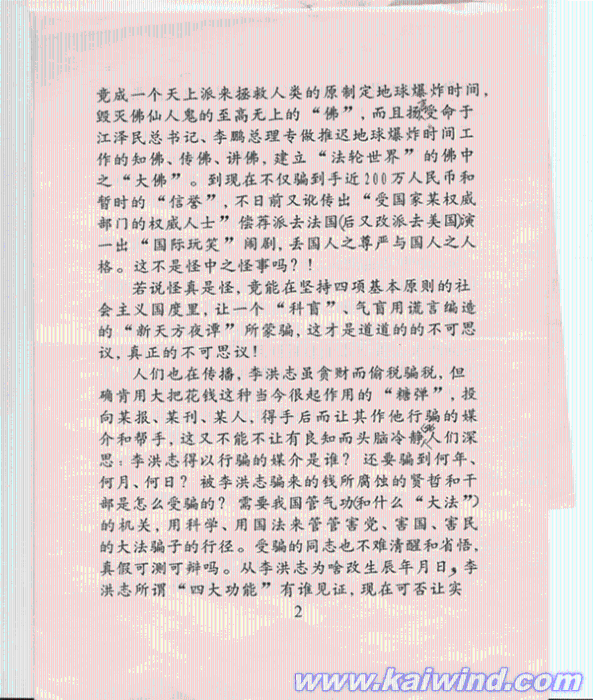 竟成一个天上派来拯救人类的原制定地球爆炸时间,
毁灭佛仙人鬼的至高无上的“佛”,而且扬言受命于
江泽民总书记、李鹏总理专做推迟地球爆炸时间工
作的知佛、传佛、讲佛,建立“法轮世界”的佛中
之“大佛”。到现在不仅骗到手近200万人民币和
暂时的“信誉”,不日前又讹传出“受国家某权威
部门的权威人士”偿荐派去法国(后又改派去美国)演
一出“国际玩笑”闹剧,丢国人之尊严与国人之人
格。这不是怪中之怪事吗?!
若说怪真是怪,竟能在坚持四项基本原则的社
会主义国度里,让一个“科盲”、气盲用谎言编造
的“新天方夜谭”所蒙骗,这才是道道的的不可思
议,真正的不可思议!
人们也在传播,李洪志虽贪财而偷税骗税,但
确肯用大把花钱这种当今很起作用的“糖弹”,投
向某报、某刊、某人,得手后而让其作他行骗的媒
介和帮手,这又不能不让有良知而头脑冷静的人们深
思:李洪志得以行骗的媒介是谁?还要骗到何年、
何月、何日?被李洪志骗来的钱所腐蚀的贤哲和干
部是怎么受骗的?需要我国管气功(和什么“大法”)
的机关,用科学、用国法来管管害党、害国、害民
的大法骗子的行径。受骗的同志也不难清醒和省悟,
真假可测可辩吗。从李洪志为啥改生辰年月日,李
洪志所谓“四大功能”有谁见证,现在可否让实
2
www.kaiwind.com